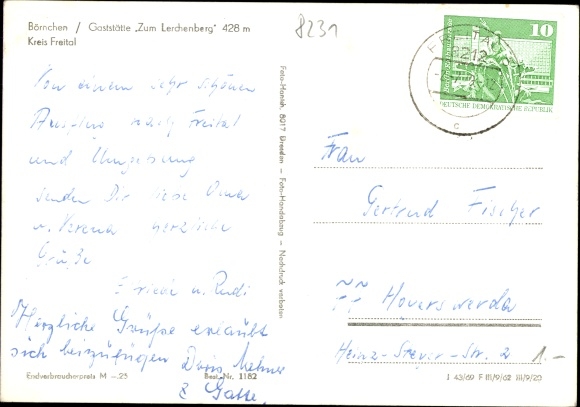 Börnchen / Gaststätte „Zum Lerchenberg" 428 m
Kreis Freital
8231
Von einem sehr schönen
Ausflug nach Freital
und Umgebung
senden Dir liebe Oma
u. Verena herzliche
Grüße
Friede u. Rudi
Herzliche Grüße erlaubt
sich beizufügen Doris
& Gatte.
Endverbraucherpreis M –.25
Best.-Nr. 1182
Foto-Hanich, 8017 Dresden – Foto-Handabzug – Nachdruck verboten
10
DEUTSCHE DEMOKRATISCHE REPUBLIK
FREITAL
8212
c
Frau
Gertrud Fischer
77 Hoyerswerda
Heinz-Steyer-Str. 2
1.-
J 43/69 F III/9/62 III/9/20